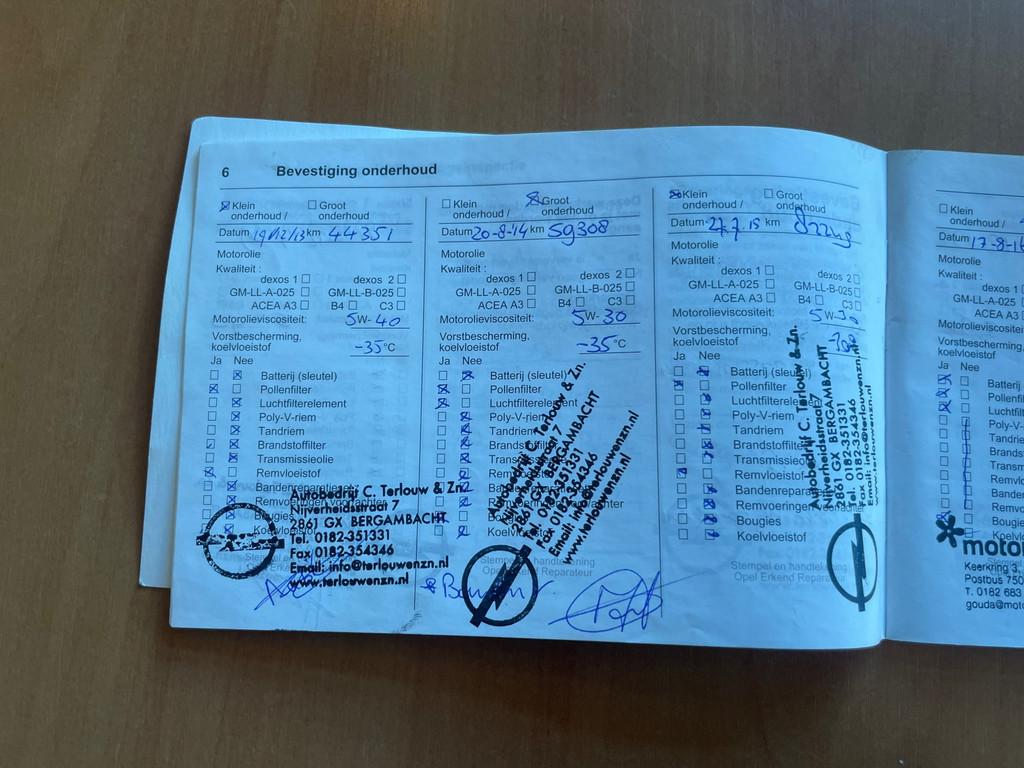 6 Bevestiging onderhoud
Klein onderhoud / Groot onderhoud
Datum 19/12/13 km 44351
Motorolie
Kwaliteit :
dexos 1 dexos 2
GM-LL-A-025 GM-LL-B-025
ACEA A3 B4 C3
Motorolieviscositeit: 5W-40
Vorstbescherming, koelvloeistof -35°C
Ja Nee
Batterij (sleutel)
Pollenfilter
Luchtfilterelement
Poly-V-riem
Tandriem
Brandstoffilter
Transmissieolie
Remvloeistof
Bandenreparatieset
Remvoeringen
Bougies
Koelvloeistof
Autobedrijf C. Terlouw & Zn.
Nijverheidsstraat 7
2861 GX BERGAMBACHT
Tel. 0182-351331
Fax 0182-354346
Email: info@terlouwenzn.nl
www.terlouwenzn.nl
Klein onderhoud / Groot onderhoud
Datum 20-8-14 km 59308
Motorolie
Kwaliteit :
dexos 1 dexos 2
GM-LL-A-025 GM-LL-B-025
ACEA A3 B4 C3
Motorolieviscositeit: 5W-30
Vorstbescherming, koelvloeistof -35°C
Ja Nee
Batterij (sleutel)
Pollenfilter
Luchtfilterelement
Poly-V-riem
Tandriem
Autobedrijf C. Terlouw & Zn.
Nijverheidsstraat 7
2861 GX BERGAMBACHT
Tel. 0182-351331
Fax 0182-354346
Email: info@terlouwenzn.nl
www.terlouwenzn.nl
Stempel en handtekening
Opel Erkend Reparateur
Klein onderhoud / Groot onderhoud
Datum 27.7.15 km
Motorolie
Kwaliteit :
dexos 1 dexos 2
GM-LL-A-025 GM-LL-B-025
ACEA A3 B4 C3
Motorolieviscositeit: 5W-30
Vorstbescherming, koelvloeistof
Ja Nee
Batterij (sleutel)
Pollenfilter
Luchtfilterelement
Poly-V-riem
Tandriem
Brandstoffilter
Transmissieolie
Remvloeistof
Bandenrepara
Remvoeringen
Bougies
Koelvloeistof
Stempel en handtekening
Opel Erkend Reparateur
Autobedrijf C. Terlouw & Zn.
Nijverheidsstraat 7
2861 GX BERGAMBACHT
Tel. 0182-351331
Fax 0182-354346
Email: info@terlouwenzn.nl
www.terlouwenzn.nl
Klein onderhoud /
Datum 17-8-16
Motorolie
Kwaliteit :
dexos 1
GM-LL-A-025
ACEA A3
Motorolieviscositeit
Vorstbescherming, koelvloeistof
Ja Nee
Batterij
Pollenf
Luchtfi
Poly-V-
Tandrie
Brands
Transm
Remvl
Bande
Remvo
Bougie
moto
Keerkring 3,
Postbus 750
T. 0182 683
gouda@mot